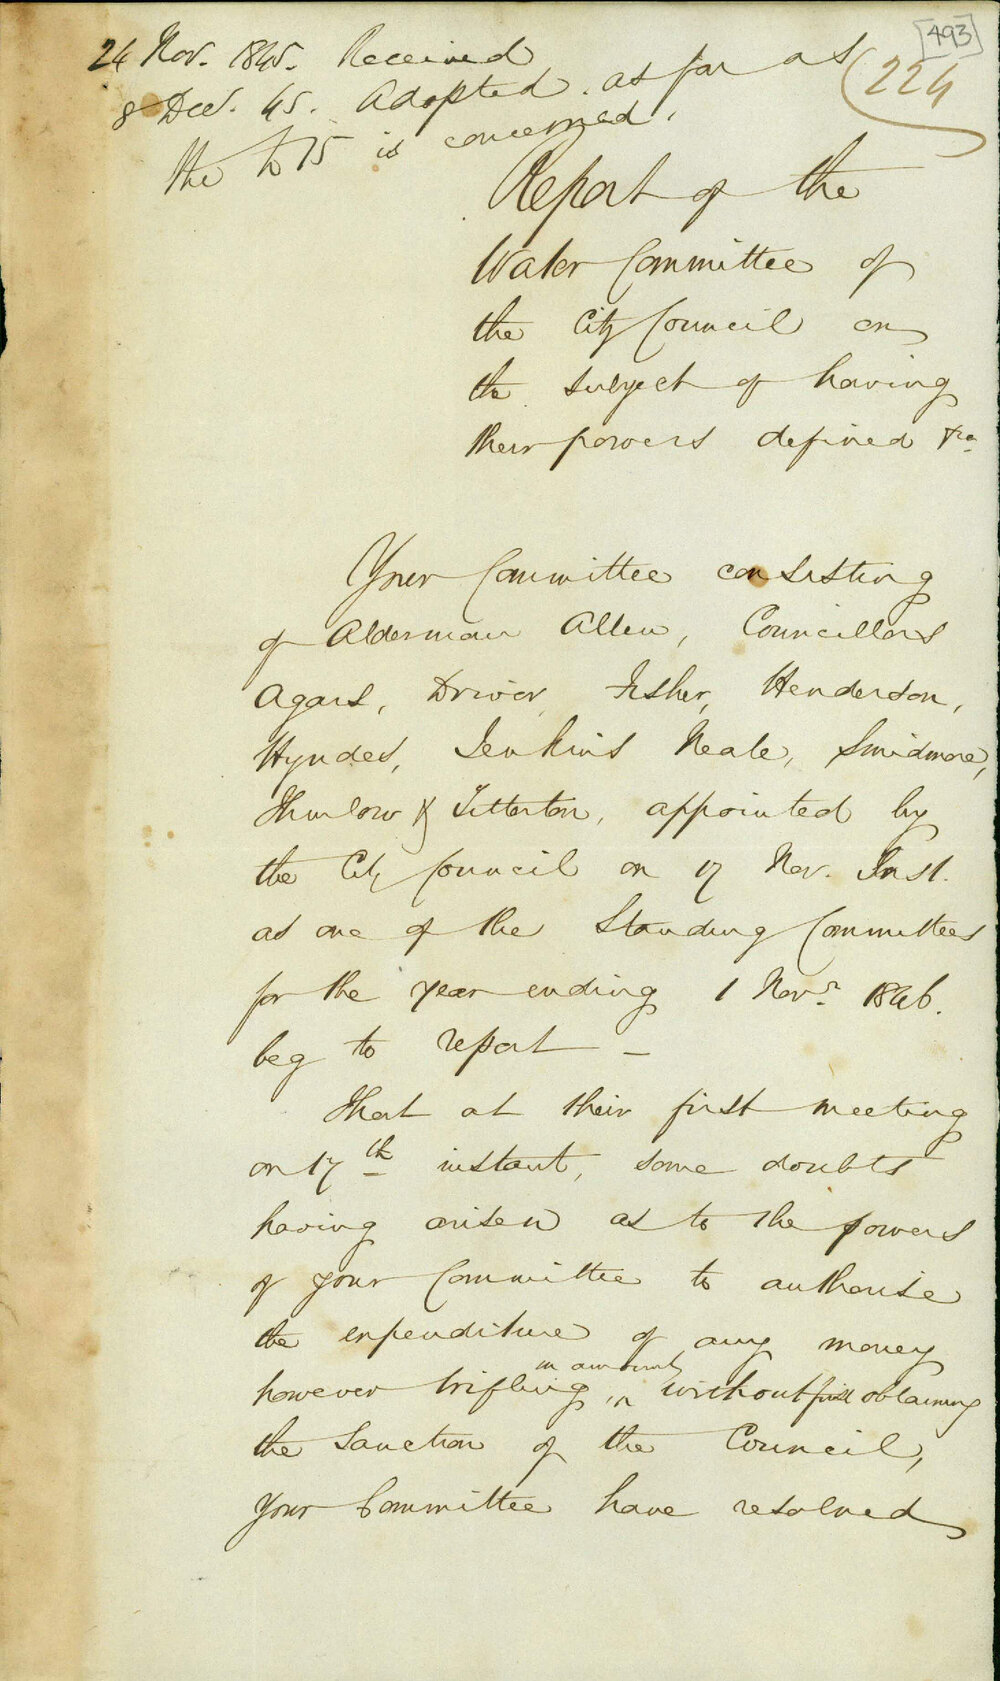 [493]
224
24 Nov. 1845. Received
8 Dec. 45. Adopted. as far as
the is concerned.
Report of the
Water Committee of
the City Council on
the subject of having
their powers defined &ca.
Your Committee consisting
of Alderman Allen, Councillors
Agars, Driver, Fisher, Henderson,
Hyndes, Jenkins Neale, Smidmore,
Thurlow & Titterton, appointed by
the City Council on 17 Nov. Inst.
as one of the Standing Committees
for the year ending 1 Novr. 1846.
beg to report —
That at their first meeting
on 17th instant, some doubts
having arisen as to the powers
of your Committee to authorise
the expenditure of any money
in amount
however trifling, without first obtaining
the Sanction of the Council,
Your Committee have resolved